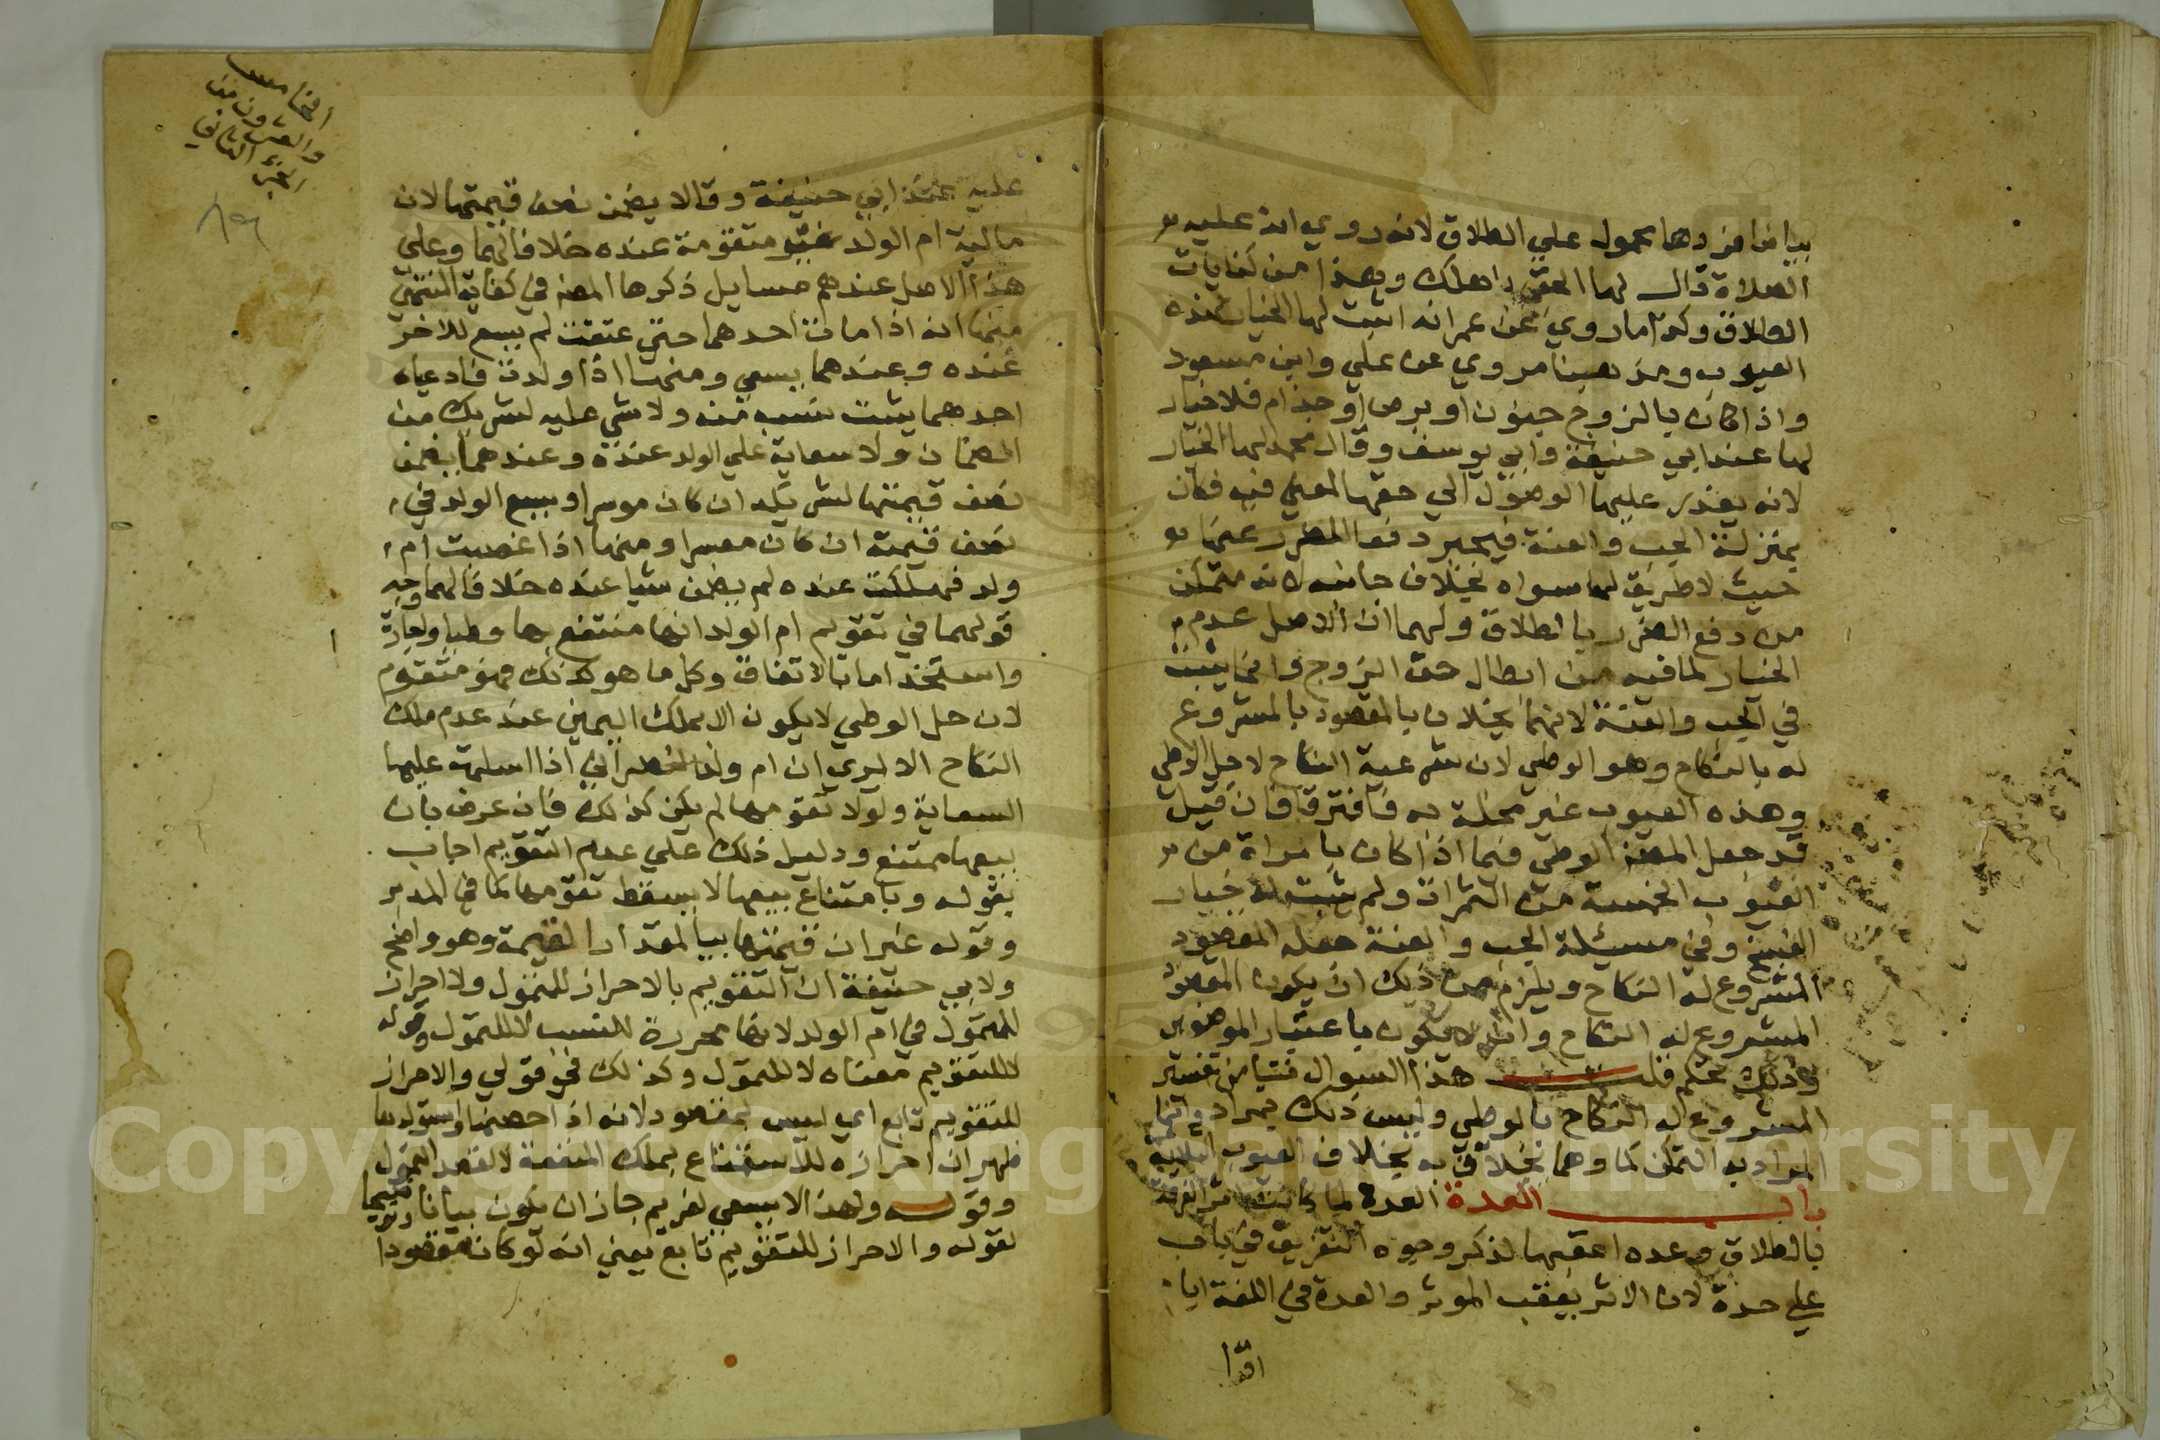 بياضا فردها محمول علي الطلاق لانه روي انه عليه
الصلاة قال لها الحقي باهلك وهذا من كنايات
الطلاق وكذا ما روي عن عمر انه اثبت لها الخيار بهذه
العيوب ومذهبنا مروي عن علي وابن مسعود
واذا كان بالزوج جنون او برص او جذام فلا خيار
لها عند ابي حنيفة وابي يوسف وقال محمد لها الخيار
لانه تعذر عليها الوصول الي حقها لمعني فيه فكان
بمنزلة الجب والعنة فيخير دفعا للضرر عنها
حيث لا طريق لها سواه بخلاف جانبه لانه متمكن
من دفع الضرر بالطلاق ولهما ان الاصل عدم
الخيار لما فيه من ابطال حق الزوج وانما يثبت
في الجب والعنة لانهما يخلان بالمقصود بالمشروع
له بالنكاح وهو الوطي لان شرعية النكاح لاجل الوطي
وهذه العيوب غير مخلة به فافترقا فان قيل
قد جعل المصنف الوطي فيما اذا كان بامراة من
العيوب الخمسة من الثمرات ولم يثبت له خيار
الفسخ وفي مسئلة الجب والعنة جعله المقصود
المشروع له النكاح ويلزم من ذلك ان يكون المقصود
المشروع له النكاح وان لا يكون باعتبار الموضوعين
وذلك تحكم قلت هذا السوال نشا من تفسير
المشروع له النكاح بالوطي وليس ذلك بمراد وانما
المراد به التمكن كما وهما يخلان به بخلاف العيوب الثلثة
باب العدة العدة لما كانت اثر الفرقة
بالطلاق وغيره اعقبها لذكر وجوه التفريق في باب
علي حدة لان الاثر يعقب الموثر والعدة في اللغة ايام
اقرا
الخامس
والعشرون من
الجزء الثاني
عليه عند ابي حنيفة وقالا يضمن نصف قيمتها لان
مالية ام الولد غير متقومة عنده خلافا لهما وعلي
هذا الاصل عندهم مسايل ذكرها المصنف في كفاية المنتهي
منها انه اذا مات احدهما حتي عتقت لم يسع للاخر
عنده وعندهما يسعي ومنها اذا ولدت فادعياه
احدهما يثبت نسبه منه ولا شي عليه لشريكه من
الضمان ولا سعاية علي الولد عنده وعندهما يضمن
نصف قيمتها لشريكه ان كان موسرا ويسع الولد في
نصف قيمته ان كان معسرا ومنها اذا غصبت ام
ولد فهلكت عنده لم يضمن شيا عنده خلافا لهما وجه
قولهما في تقويم ام الولد انها منتفع بها وطيا واجارة
واستخداما بالاتفاق وكل ما هو كذلك فهو متقوم
لان حل الوطي لا يكون الا بملك اليمين عند عدم ملك
النكاح الا يري ان ام ولد النصراني اذا اسلمت عليها
السعاية ولولا تقومها لم يكن كذلك فان عرض بان
بيعها ممتنع ودليل ذلك علي عدم التقويم اجاب
بقوله وبامتناع بيعها لا يسقط تقومها كما في المدبر
وقوله غير ان قيمتها بيا لمقدار القيمة وهو واضح
ولابي حنيفة ان التقويم بالاحراز للتمول ولا احراز
للتمول في ام الولد لانها محرزة للنسب لا للتمول وقوله
لا للتقويم معناه لا للتمول وكذلك في قولي والاحراز
للتقويم تابع اي ليس بمقصود لانه اذا حصنها واستولدها
ظهر ان احرازه للاستمتاع بملك المتعة لا لقصد التمول
وقوله ولهذا لا يسعي لغريم جاز ان يكون بيانا وتوضيحا
لقوله والاحراز للتقويم تابع يعني انه لو كان مقصودا
Copyright © King Saud University